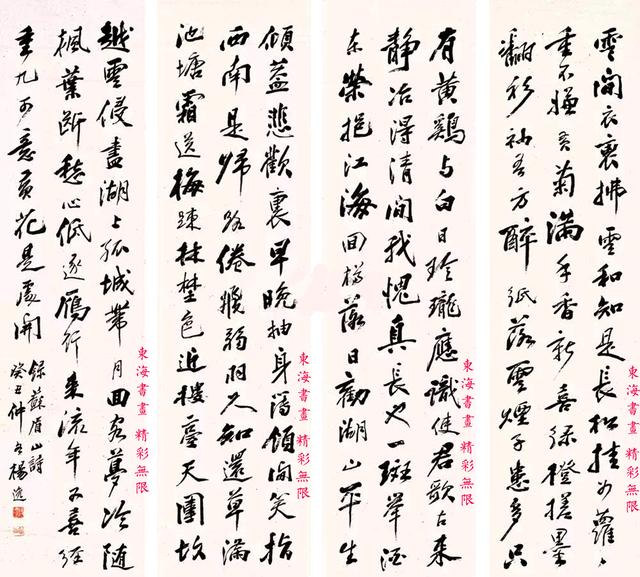 是長松挂女蘿
重不嫌吾菊滿手香新喜綠橙搓墨
翻衫袖吾方醉紙落雲煙子患多只
有黃鷄與白日玲瓏應識使君歌古來
静治得清閒我愧真長也一斑舉酒
东榮挹江海回樽落日勸湖山平生
傾蓋悲歡裏早晚抽身簿領間笑指
西南是歸路倦飛弱羽久知還草滿
池塘霜送梅踈林野色近樓臺天圍故
越雲侵盡湖上孤城帶月回客夢冷隨
楓葉斷愁心低逐鴈行來流年不喜經
重九可意黃花是處開
錄蘇眉山詩
癸丑仲冬楊逸
東海書畫 精彩無限
東海書畫 精彩無限
東海書畫 精彩無限
東海書畫 精彩無限